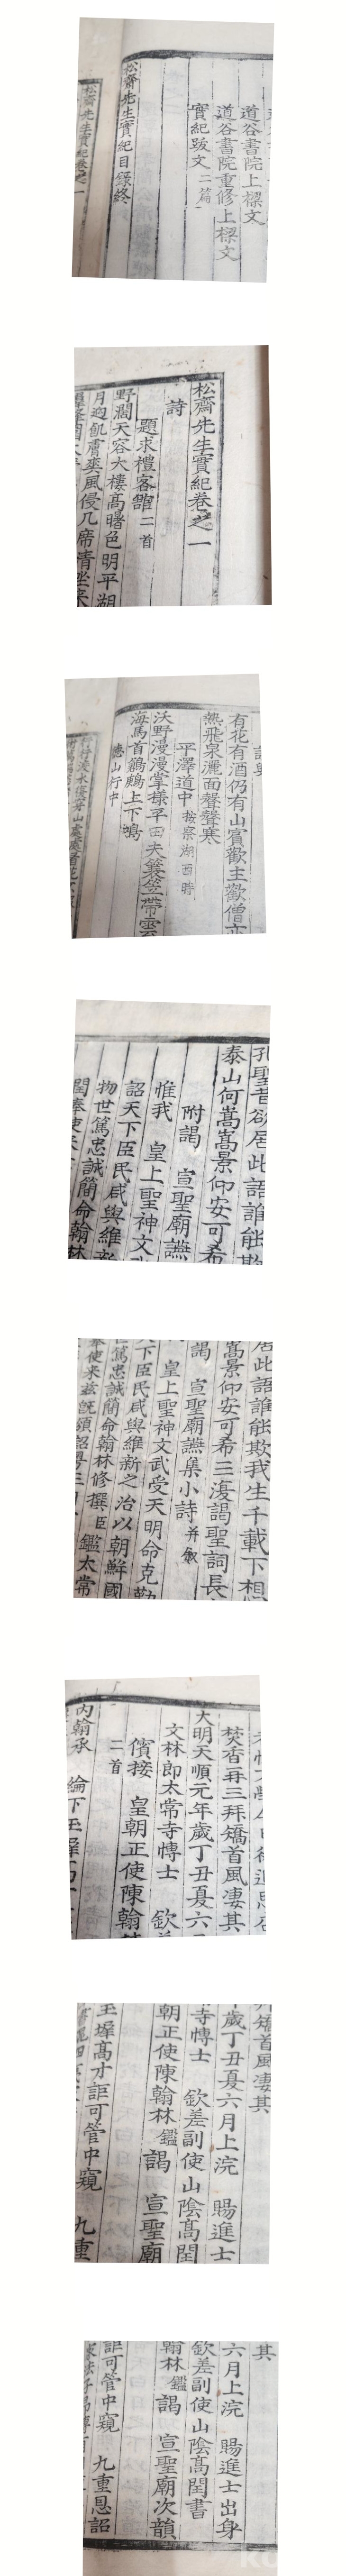 道谷書院上樑文
道谷書院重修上樑文
實紀跋文二篇
松齋先生實紀目錄終
松齋先生實紀卷之一
松齋先生實紀卷之一
詩
題求禮客館二首
野濶天容大樓高曙色明平湖
月迎飢膚爽風侵几席清坐來
有花有酒仍有山賓歡主歡僧亦
熱飛泉灑面聲聲寒
平澤道中按察湖西時
沃野漫漫掌樣平田夫簑笠帶雲
海馬首鶬鶊上下鳴
山行中
孔聖昔欲居此語誰能欺
泰山何嵩嵩景仰安可希
附謁 宣聖廟讌
惟我 皇上聖神文
詔天下臣民咸與維新
物世篤忠誠簡命翰林
居此語誰能欺我生千載下想
嵩景仰安可希三復謁聖詞長
謁 宣聖廟讌集小詩并敘
皇上聖神文武受天明命克勤
下臣民咸與維新之治以朝鮮國
篤忠誠簡命翰林修撰臣 鑑太常
奉使來玆旣頒詔
焚香再三拜矯首風凄其
大明天順元年歲丁丑夏六
文林郎太常寺博士 欽
儐接 皇朝正使陳翰林
二首
內翰承 綸下玉墀
矯首風凄其
歲丁丑夏六月上浣 賜進士
寺博士 欽差副使山陰高閏
朝正使陳翰林鑑謁 宣聖廟
玉墀高才詎可管中窺 九重
其
六月上浣 賜進士出身
欽差副使山陰高閏書
翰林鑑謁 宣聖廟次韻
詎可管中窺 九重恩詔